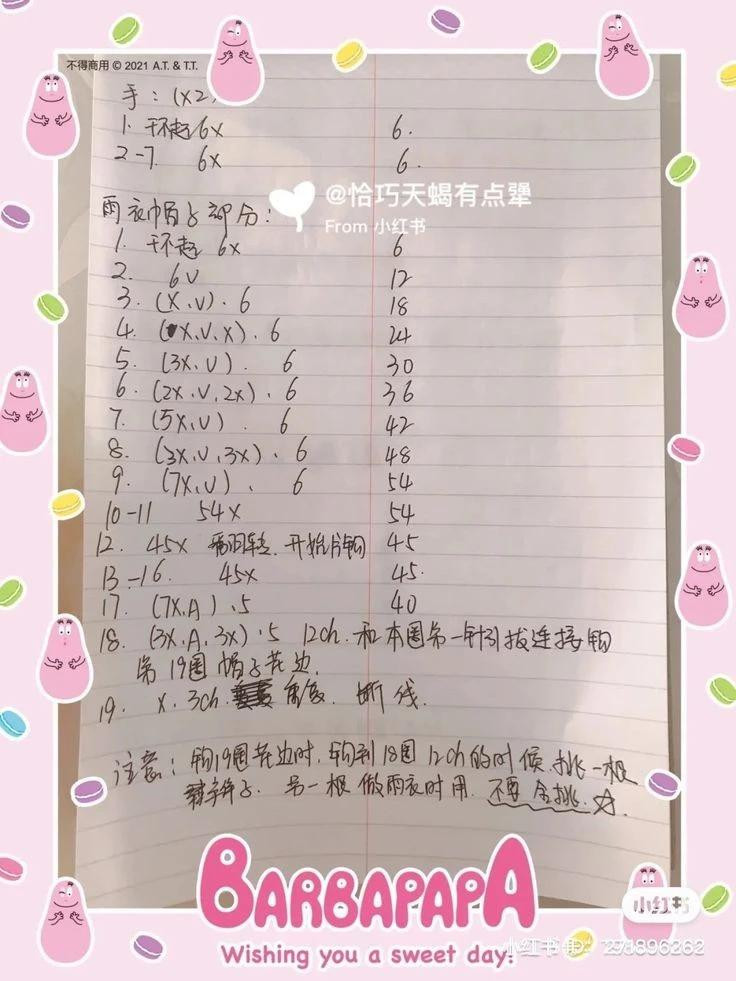 不得商用 © 2021 A.T. & T.T.
手：(x2)
1. 环起6x 6.
2-7. 6x 6.
@恰巧天蝎有点犟
From 小红书
雨衣帽子部分：
1. 环起 6x 6
2. 6V 12
3. (X,V).6 18
4. (X,V,X).6 24
5. (3X,V). 6 30
6. (2X,V,2X).6 36
7. (5X,V). 6 42
8. (3X,V,3X).6 48
9. (7X,V). 6 54
10-11 54X 54
12. 45X 翻转. 开始片钩 45
13-16. 45X 45.
17. (7X,A).5 40
18. (3X,A,3X).5 12ch. 和本圈第一针引拔连接钩
第19圈帽子花边
19. X.3ch. 重复. 断线.
注意：钩19圈花边时,钩到18圈12ch的时候,挑一根
辫子. 另一根做雨衣时用. 不要全挑.☆.
BARBAPAPA
Wishing you a sweet day!
小红书
小红书号: 271896262